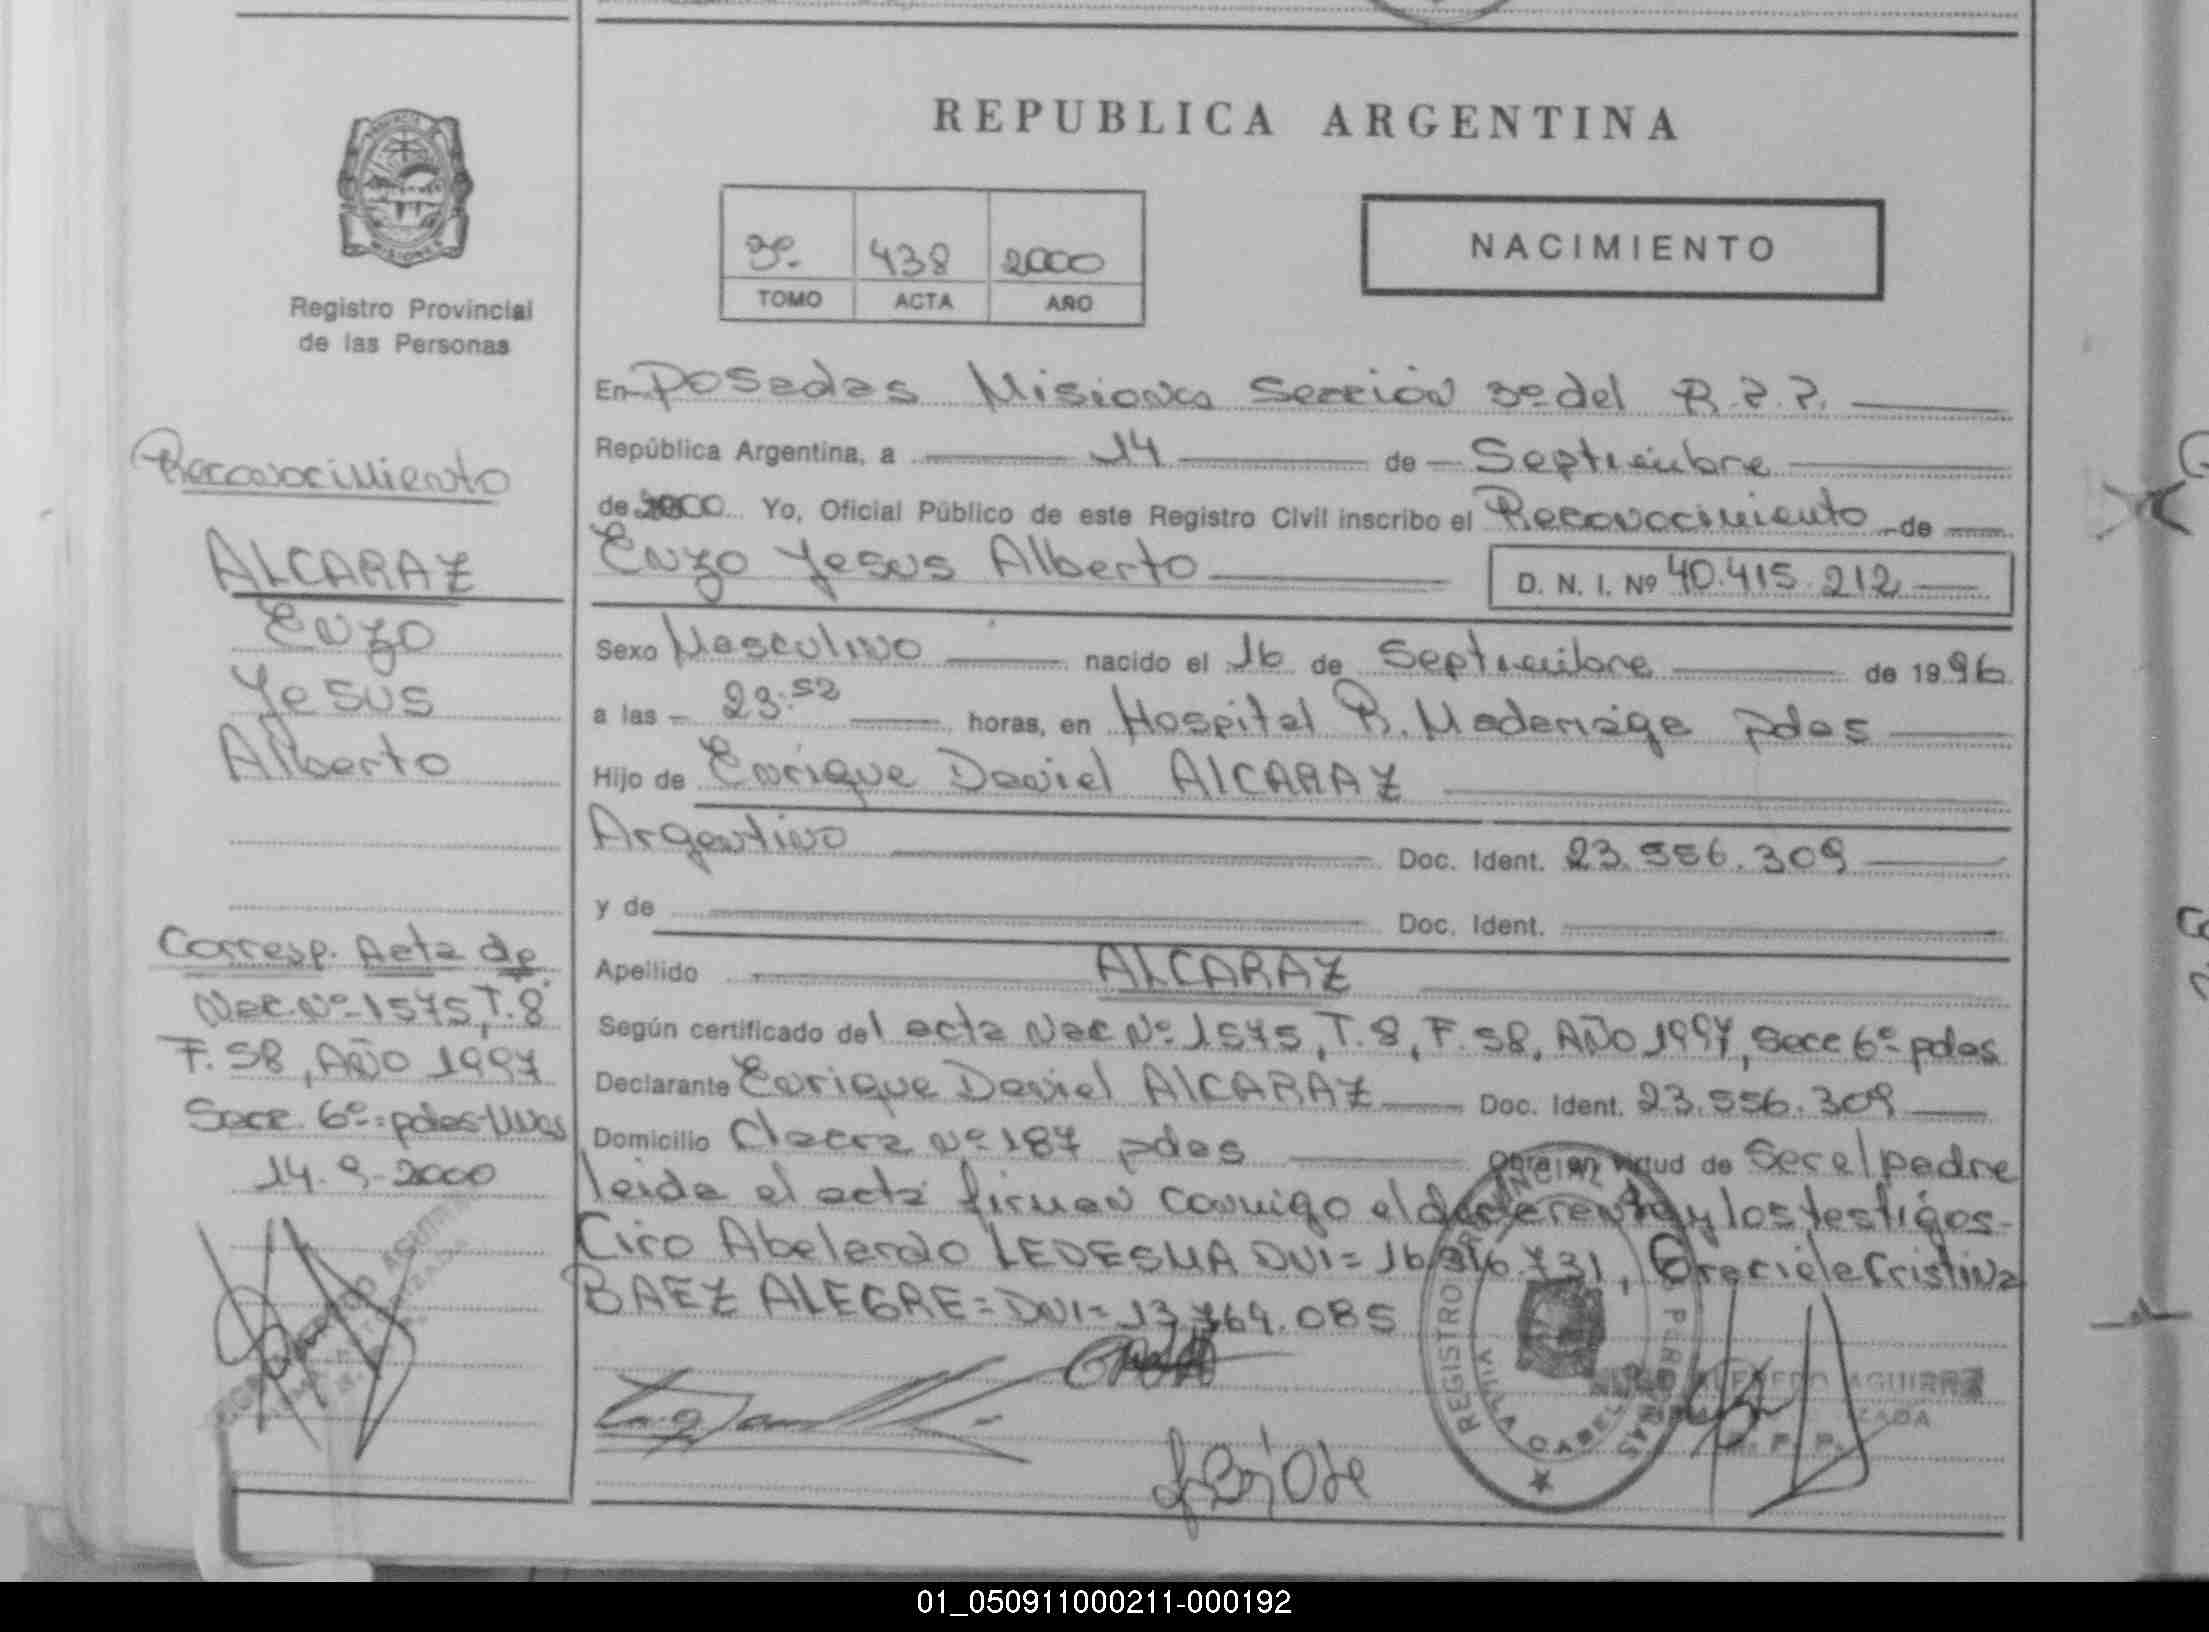 REPUBLICA ARGENTINA
3º 438 2000
TOMO ACTA AÑO
NACIMIENTO
MISIONES
Registro Provincial
de las Personas
Reconocimiento
ALCARAZ
Enzo
Jesus
Alberto
Corresp. Acta de
Nac. Nº 1575, T. 8
F. 58, AÑO 1997
Secc. 6º = pdas-Mnes
14-9-2000
En Posadas Misiones Sección 3º del R.P.P.
República Argentina, a 14 de Septiembre
de 2000 Yo, Oficial Público de este Registro Civil inscribo el Reconocimiento de
Enzo Jesus Alberto D. N. I. Nº 40.415.212
Sexo Masculino nacido el 16 de Septiembre de 1996
a las 23:52 horas, en Hospital R. Madariaga pdas
Hijo de Enrique Daniel ALCARAZ
Argentino Doc. Ident. 23.556.309
y de Doc. Ident.
Apellido ALCARAZ
Según certificado del acta Nac Nº 1575, T. 8, F. 58, AÑO 1997, Secc 6º pdas
Declarante Enrique Daniel ALCARAZ Doc. Ident. 23.556.309
Domicilio Chacra Nº 187 pdas Obra en virtud de Ser el padre
leida el acta firman conmigo el declarante y los testigos-
Ciro Abelardo LEDESMA DNI= 16.316.731, Graciela Cristina
BAEZ ALEGRE = DNI= 13.764.085
REGISTRO PROVINCIAL PERSONAS
VILLA CABELLO
ALFREDO AGUIRRE
R. P. P.
01_050911000211-000192